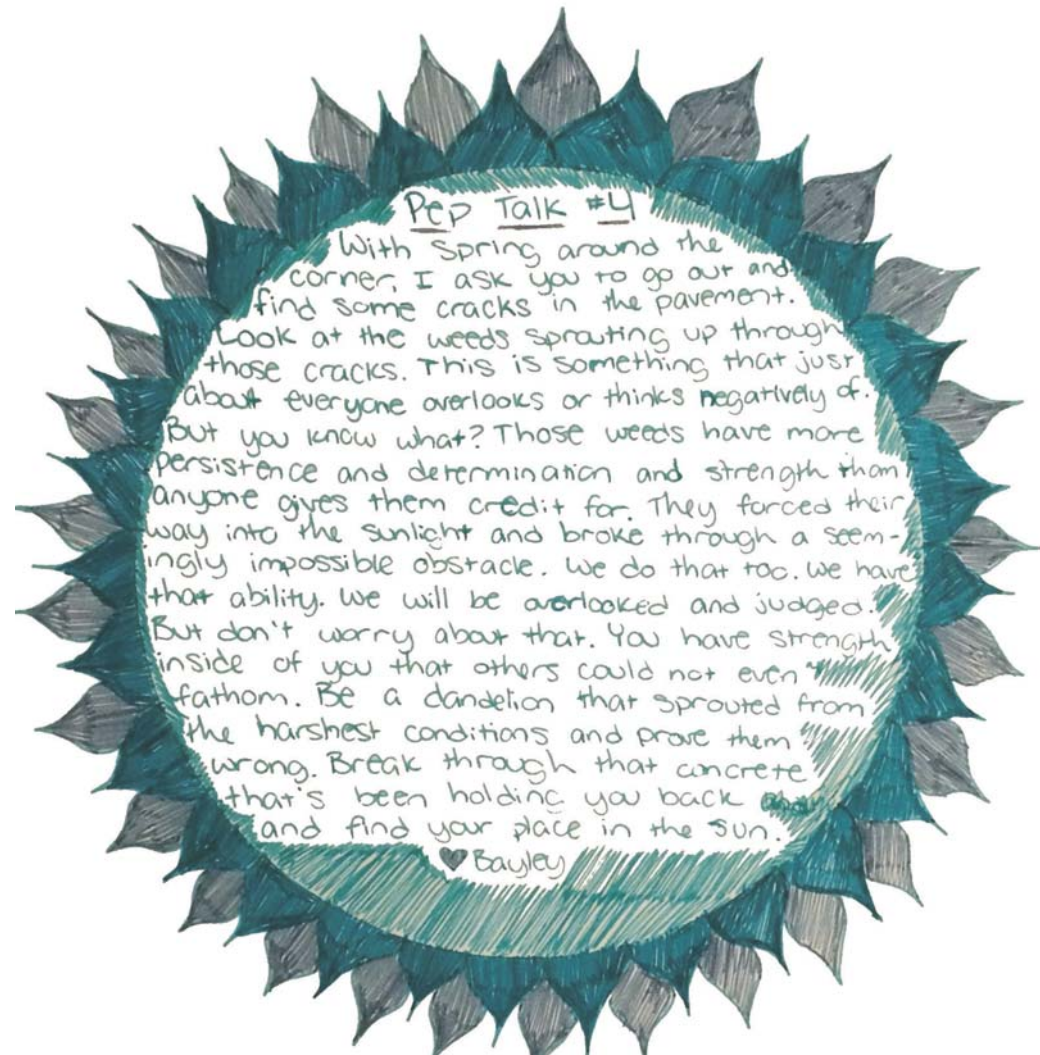 Pep Talk #4
With Spring around the
corner, I ask you to go out and
find some cracks in the pavement.
Look at the weeds sprouting up through
those cracks. This is something that just
about everyone overlooks or thinks negatively of.
But you know what? Those weeds have more
persistence and determination and strength than
anyone gives them credit for. They forced their
way into the sunlight and broke through a seem-
ingly impossible obstacle. We do that too. We have
that ability. We will be overlooked and judged.
But don't worry about that. You have strength
inside of you that others could not even
fathom. Be a dandelion that sprouted from
the harshest conditions and prove them
wrong. Break through that concrete
that's been holding you back
and find your place in the sun.
♥ Bayley